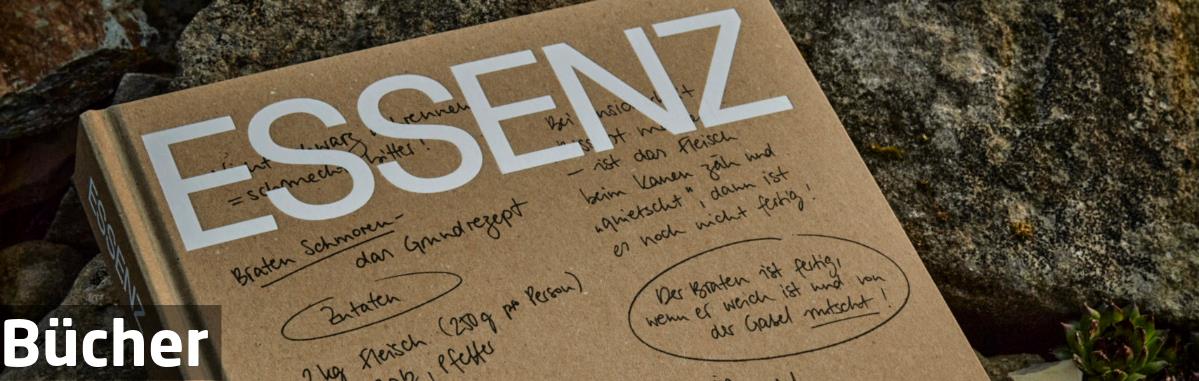 ESSENZ
schwarz
= schmeckt bitter!
Braten Schmoren-
das Grundrezept
Zutaten
2 kg Fleisch (250g pro Person)
, Pfeffer
Bei
– ist das Fleisch
beim Kauen zäh und
„quietscht", dann ist
es noch nicht fertig!
Der Braten ist fertig,
wenn er weich ist und von
der Gabel rutscht!
ESSENZ
Bücher